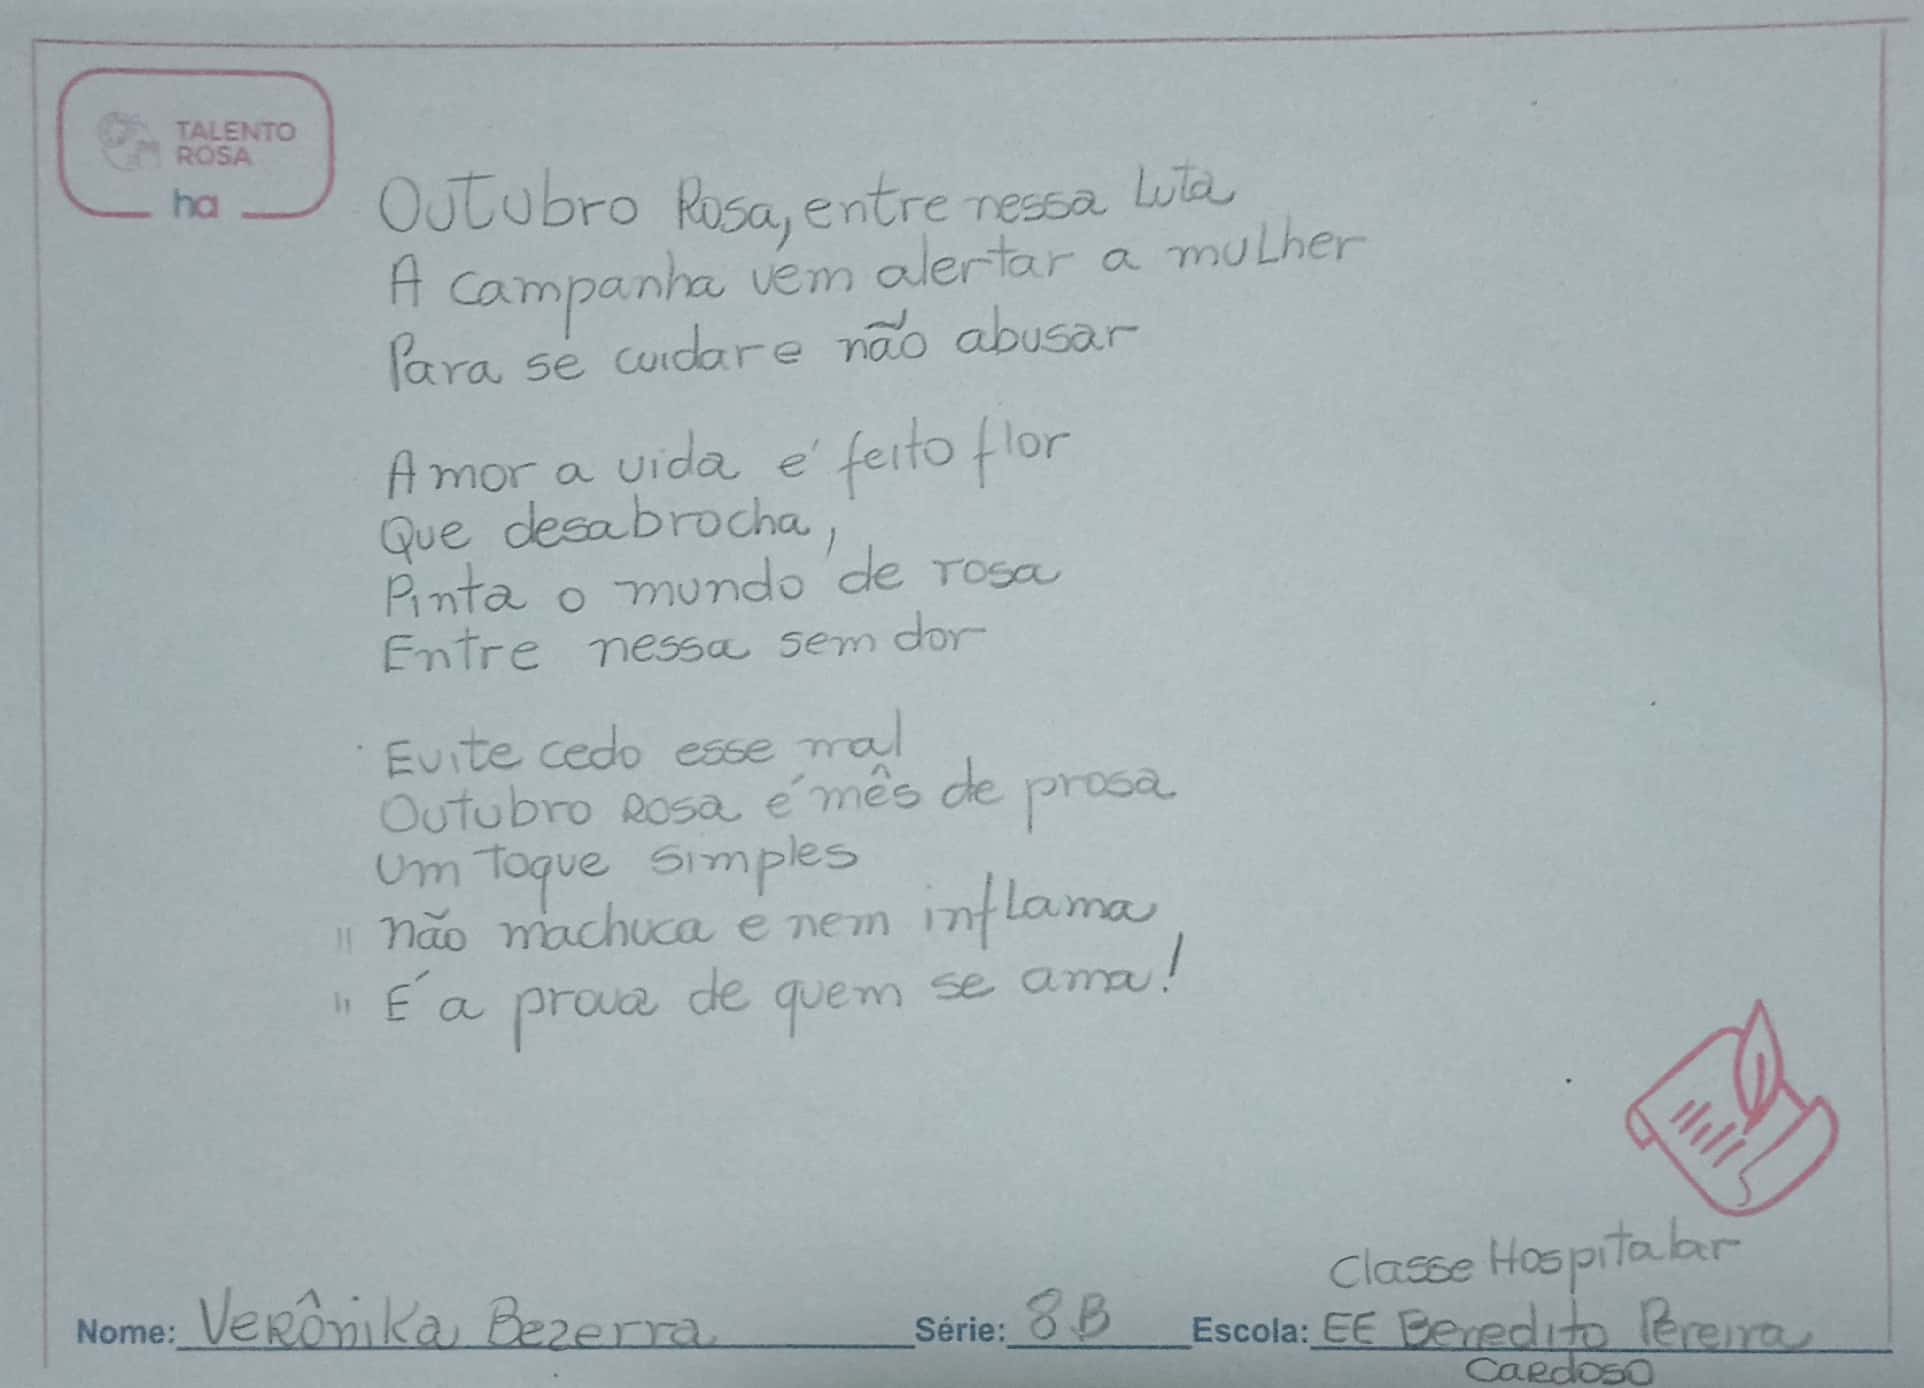 TALENTO
ROSA
ha
Outubro Rosa, entre nessa luta
A campanha vem alertar a mulher
Para se cuidar e não abusar
Amor a vida é feito flor
Que desabrocha,
Pinta o mundo de rosa
Entre nessa sem dor
Evite cedo esse mal
Outubro Rosa é mês de prosa
Um toque simples
" não machuca e nem inflama
" É a prova de quem se ama!
Classe Hospitalar
Nome: Verônika Bezerra Série: 8B Escola: EE Benedito Pereira
Cardoso